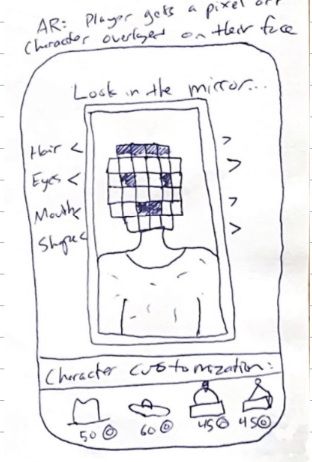 AR: Player gets a pixel art
Character overlayed on their face
Look in the mirror...
Hair < >
Eyes < >
Mouth < >
Shape < >
Character customization:
50 60 45 45